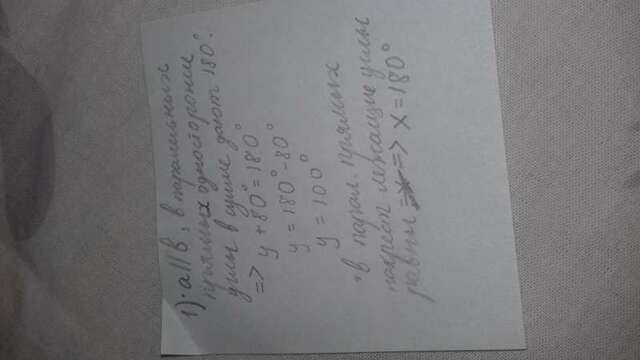 1) · a || b, в паралельных
прямых односторонние
углы в сумме дают 180°.
=> y + 80° = 180°
y = 180° - 80°
y = 100°
· в парал. прямых
накрест лежащие углы
равны => x = 180°